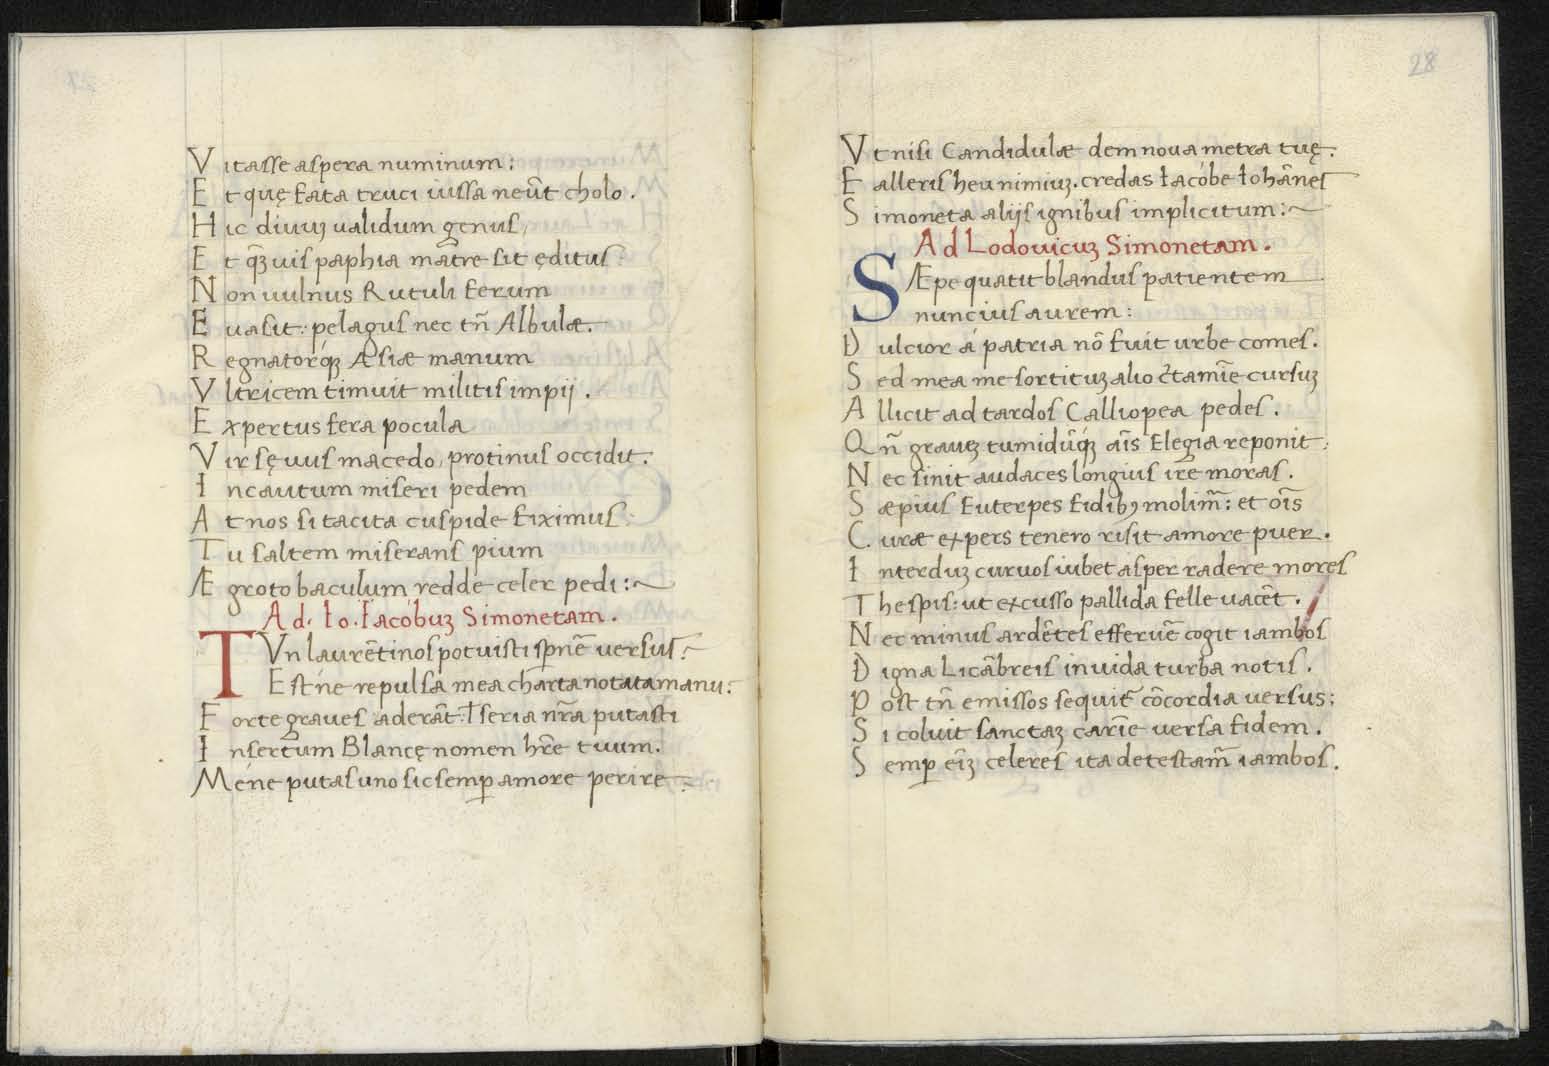 Vitasse aspera numinum:
Et quę fata truci iussa neūt cholo.
Hic diuuꝫ ualidum genus,
Et qꝫuis paphia mātre sit ęditus:
Non uulnus Rutuli ferum
Euasit: pelagus nec tn̄ Albulæ.
Regnatorq́ꝫ Æsiæ manum
Vltricem timuit militis impij.
Expertus fera pocula
Vir sęuus macedo, protinus occidit.
Incautum miseri pedem
At nos si tacita cuspide fiximus:
Tu saltem miserans pium
Ægroto baculum redde celer pedi:~
Ad. Io. Iacóbuꝫ Simonetam.
TVn laurētinos potuisti sꝑnē̄ uersus?
Est ńe repulsa mea charta notata manu?
Forte graues aderāt: I seria nr̄a putasti
Insertum Blancę nomen hr̄e tuum.
Méne putas uno sic semꝑ amore perire?
28
Vt nisi Candidulæ dem noua metra tuę.
Falleris heu nimiuꝫ. credas Iacóbe Iohānes
Simoneta alijs ignibus implicitum:~
Ad Lodouicuꝫ Simonetam.
SÆpe quatit blandus patientem
nuncius aurem:
Dulcior á patria nō fuit urbe comes.
Sed mea me sortituꝫ alio c̄tamīe cursuꝫ
Allicit ad tardos Calliopea pedes.
Qn̄ grauꝫ tumidūq́ꝫ aīs Elegia reponit:
Nec sinit audaces longius ire moras.
Sæpius Euterpes fidibꝰ molim̄: et oīs
Curæ expers tenero risit amore puer.
Interduꝫ curuos iubet asper radere mores
Thespis: ut excusso pallida felle uacēt.
Nec minus ardētes efferuē cogit iambos
Digna Licābreis inuida turba notis.
Post tn̄ emissos sequit̄ cōcordia uersus;
Si coluit sanctaꝫ carīe uersa fidem.
Semꝑ eīꝫ celeres ita detestam̄ iambos.